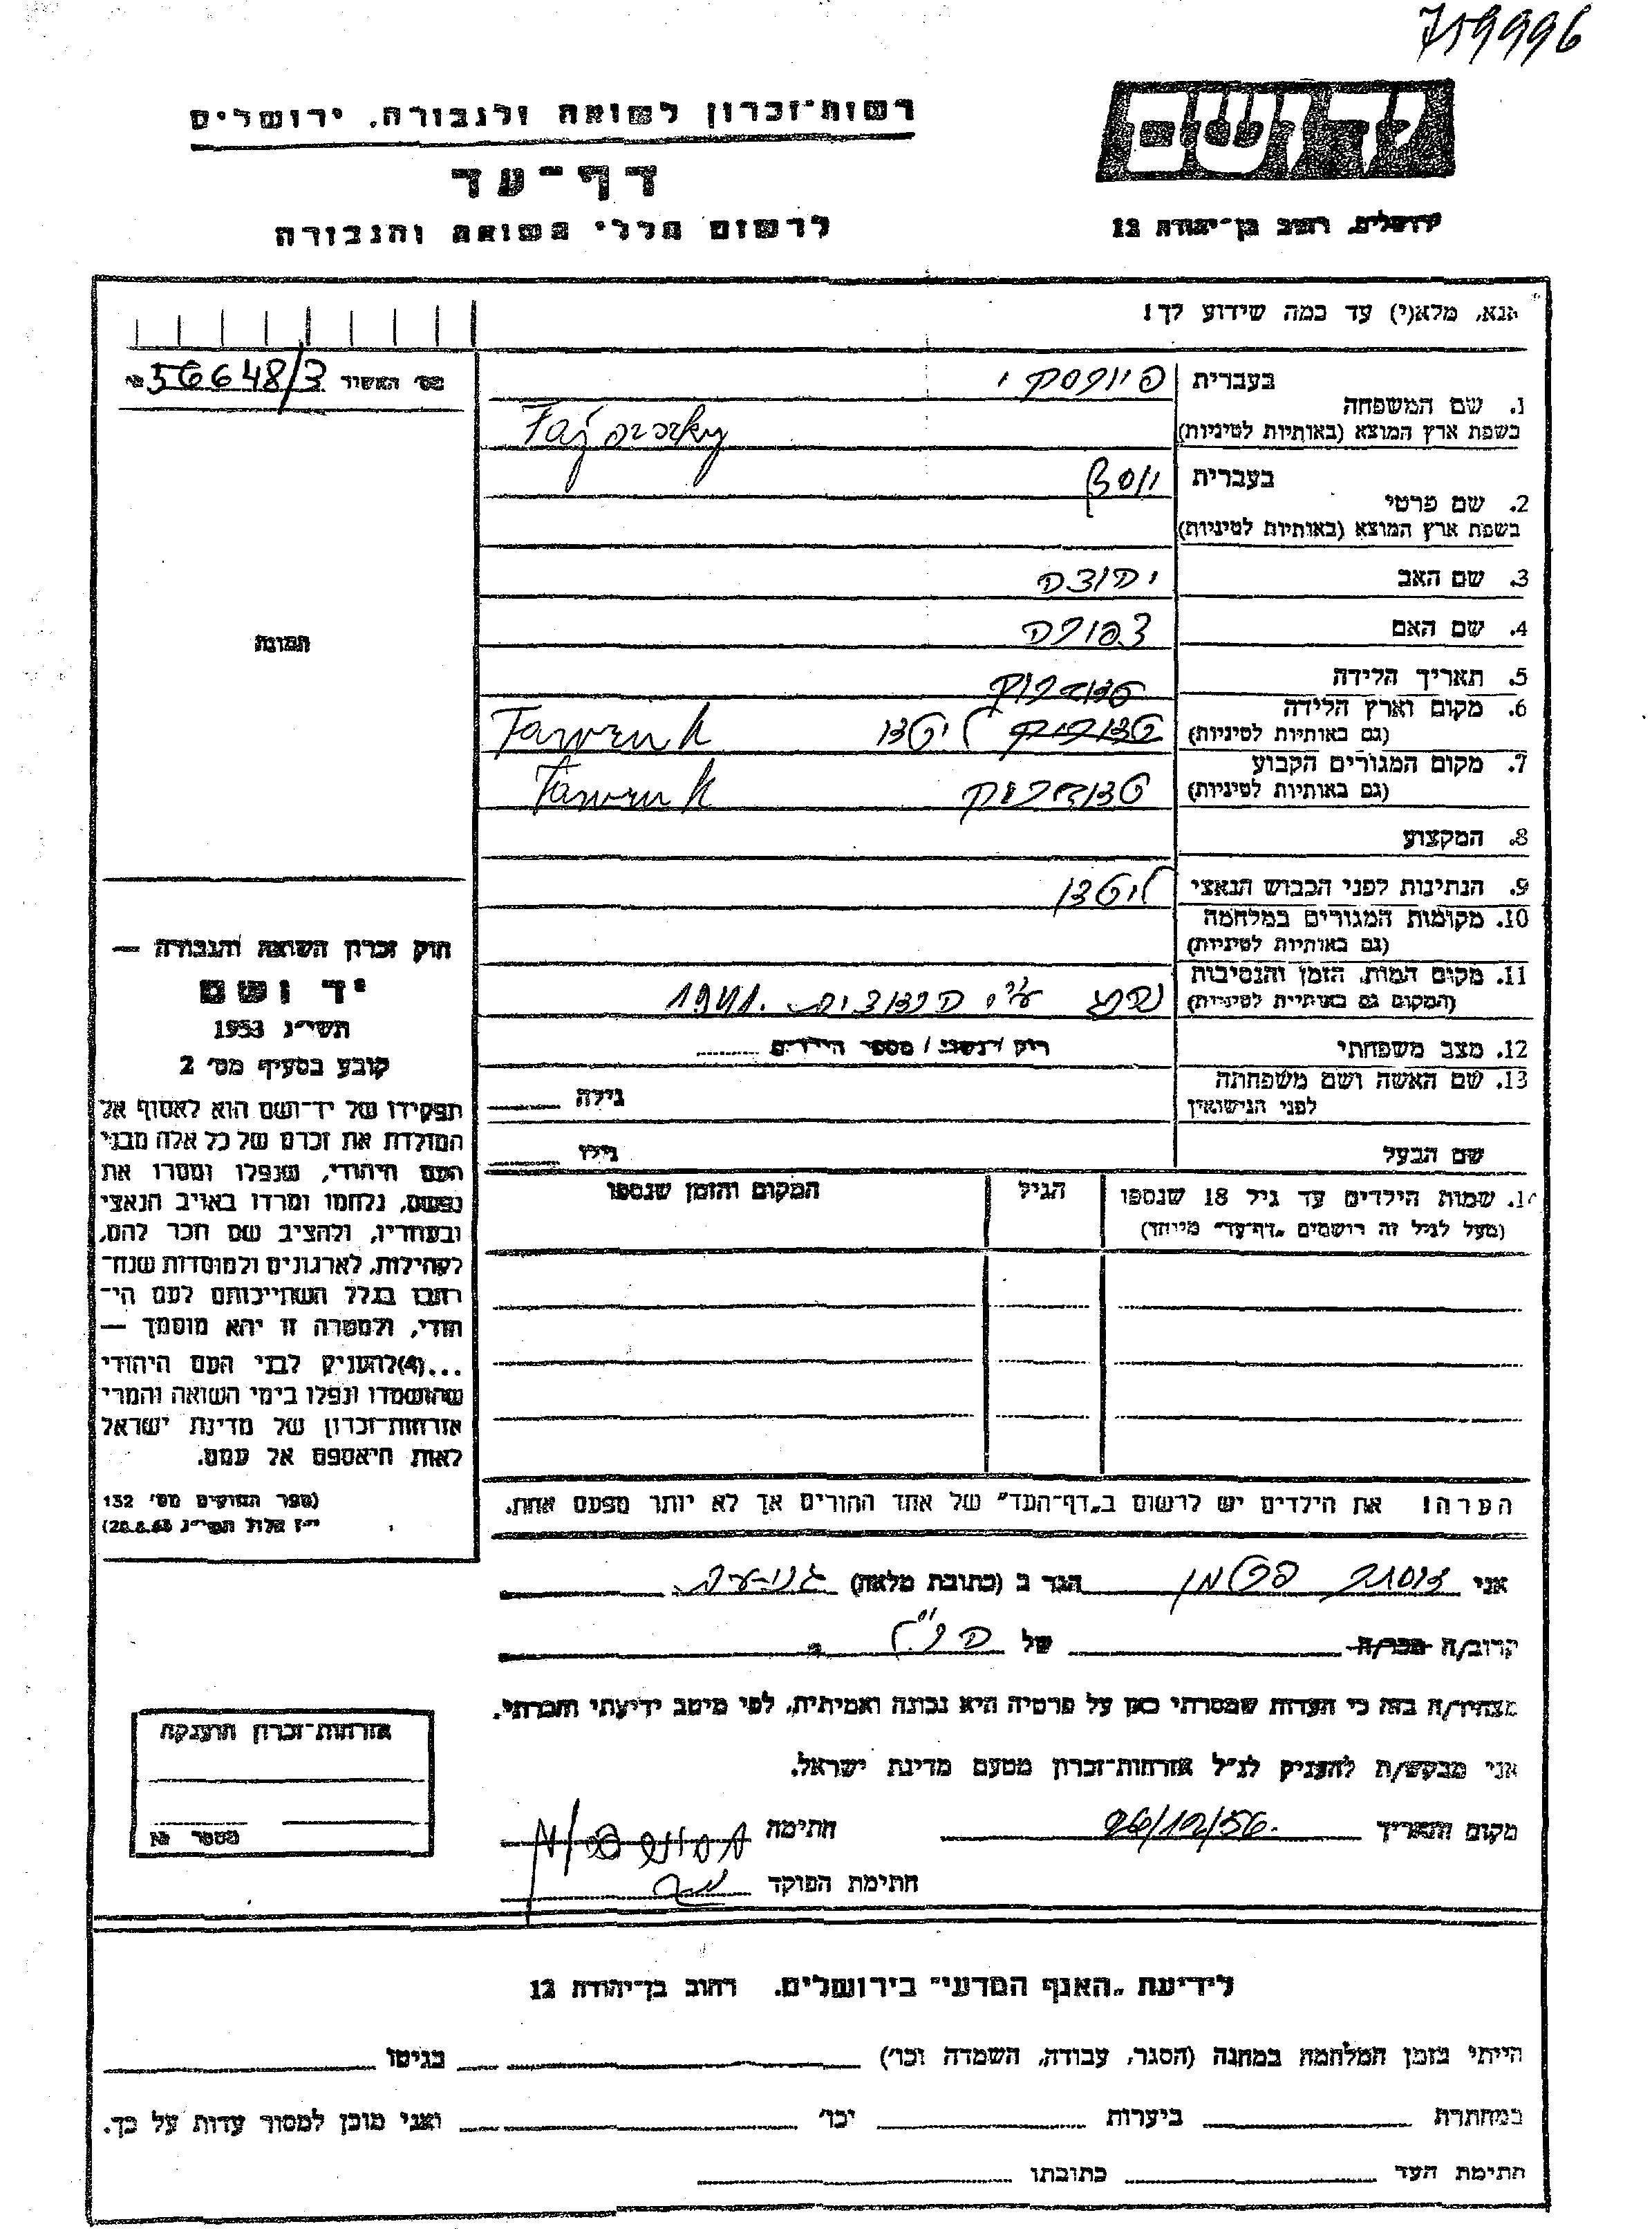 719996
יד ושם
רשות־זכרון לשואה ולגבורה, ירושלים
דף־עד
לרשום חללי השואה והגבורה
ירושלים, רחוב בן־יהודה 12
אנא, מלא(י) עד כמה שידוע לך!
מס' האשור 56648/3 №
תמונה
1. שם המשפחה
בעברית
בשפת ארץ המוצא (באותיות לטיניות)
2. שם פרטי
בעברית יוסף
בשפת ארץ המוצא (באותיות לטיניות)
3. שם האב יהודה
4. שם האם צפורה
5. תאריך הלידה
6. מקום וארץ הלידה
(גם באותיות לטיניות) ליטא
7. מקום המגורים הקבוע
(גם באותיות לטיניות)
8. המקצוע
9. הנתינות לפני הכבוש הנאצי ליטאי
10. מקומות המגורים במלחמה
(גם באותיות לטיניות)
11. מקום המות, הזמן והנסיבות
(המקום גם באותיות לטיניות) נהרג ע"י הנאצים 1941.
12. מצב משפחתי רוק / נשוי / מספר הילדים
13. שם האשה ושם משפחתה
לפני הנישואין גילה
שם הבעל גילו
14. שמות הילדים עד גיל 18 שנספו הגיל המקום והזמן שנספו
(מעל לגיל זה רושמים "דף־עד" מיוחד)
הערה! את הילדים יש לרשום ב"דף־העד" של אחד ההורים אך לא יותר מפעם אחת.
חוק זכרון השואה והגבורה —
יד ושם
תשי"ג 1953
קובע בסעיף מס' 2
תפקידו של יד־ושם הוא לאסוף אל
המולדת את זכרם של כל אלה מבני
העם היהודי, שנפלו ומסרו את
נפשם, נלחמו ומרדו באויב הנאצי
ובעוזריו, ולהציב שם וזכר להם,
לקהילות, לארגונים ולמוסדות שנח־
רבו בגלל השתייכותם לעם הי־
הודי, ולמטרה זו יהא מוסמך —
...(4)להעניק לבני העם היהודי
שהושמדו ונפלו בימי השואה והמרי
אזרחות־זכרון של מדינת ישראל
לאות היאספם אל עמם.
(ספר החוקים מס' 132
י"ז אלול תשי"ג 28.8.53)
אני הגר ב (כתובת מלאה)
קרוב/ה מכר/ה של הנ"ל
מצהיר/ה בזה כי העדות שמסרתי כאן על פרטיה היא נכונה ואמיתית, לפי מיטב ידיעתי והכרתי.
אני מבקש/ת להעניק לנ"ל אזרחות־זכרון מטעם מדינת ישראל.
מקום ותאריך 26/12/56. חתימה
חתימת הפוקד
אזרחות־זכרון הוענקה
מספר №
לידיעת "האגף המדעי" בירושלים, רחוב בן־יהודה 12
הייתי בזמן המלחמה במחנה (הסגר, עבודה, השמדה וכו') בגיטו
במחתרת ביערות וכו' ואני מוכן למסור עדות על כך.
חתימת העד כתובתו